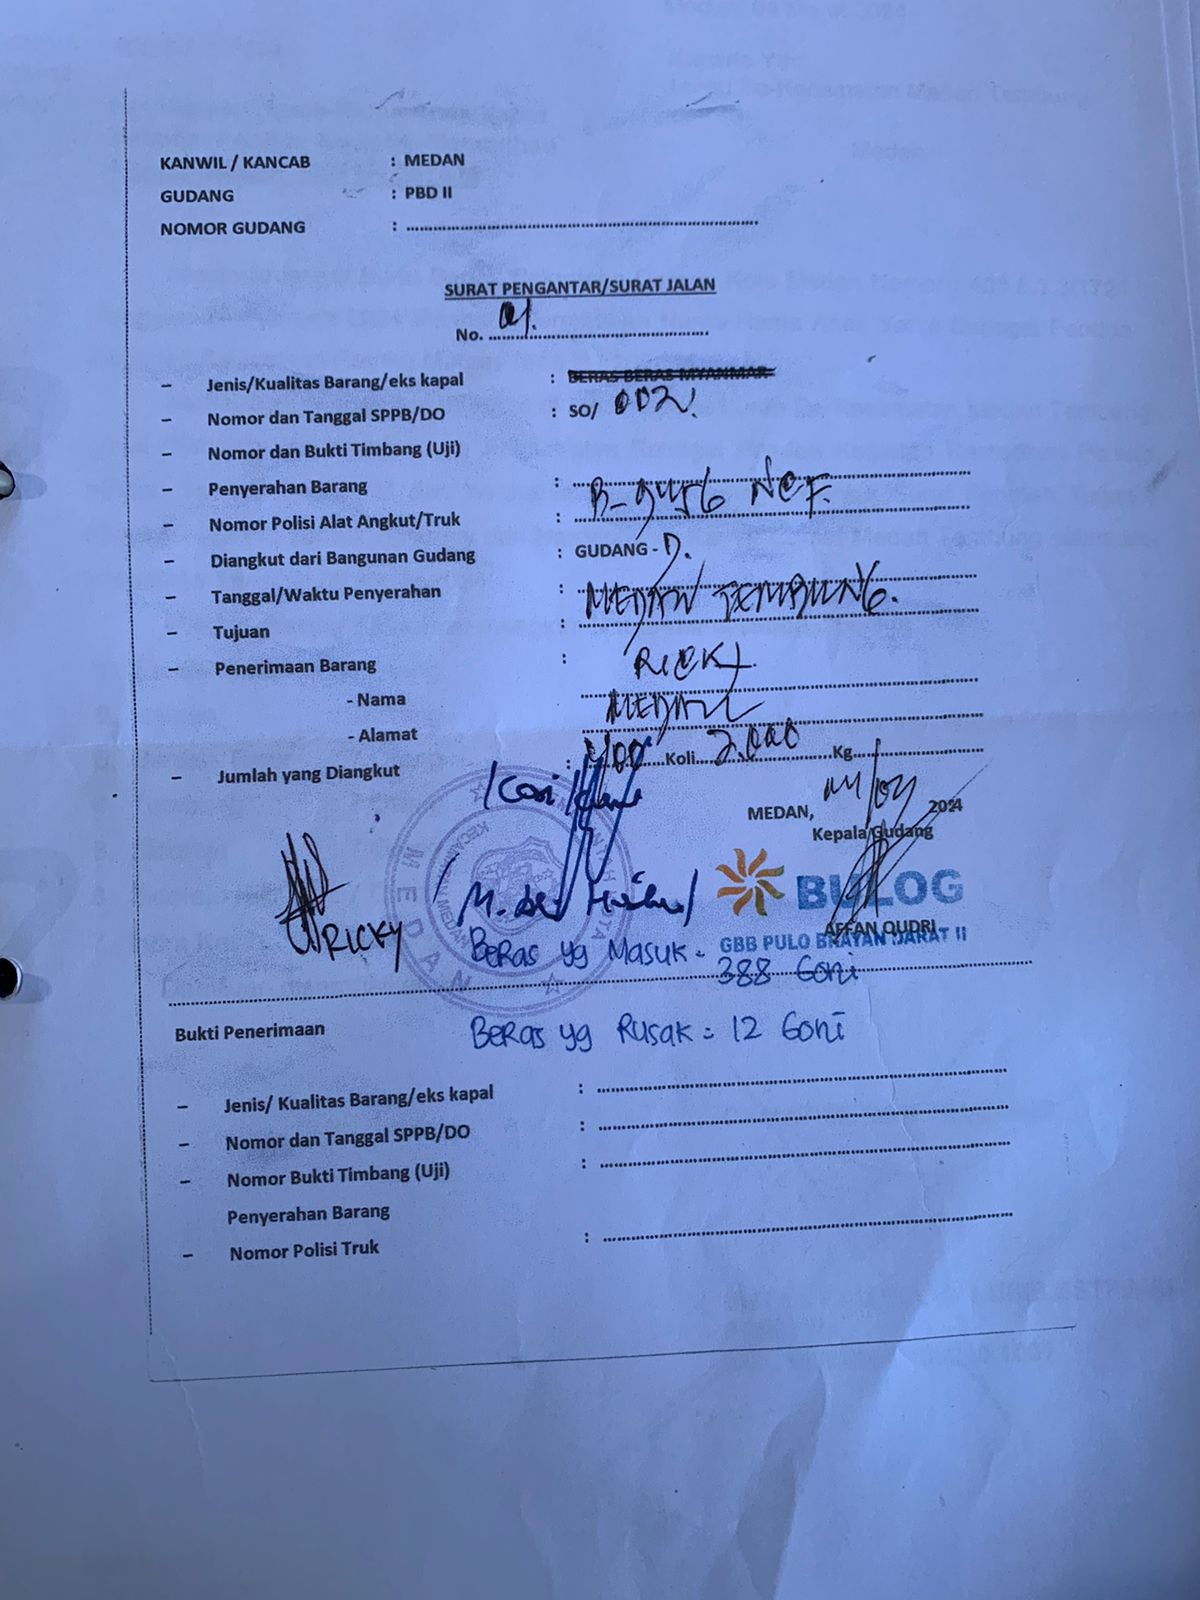 KANWIL / KANCAB : MEDAN
GUDANG : PBD II
NOMOR GUDANG :
SURAT PENGANTAR/SURAT JALAN
No. 01.
– Jenis/Kualitas Barang/eks kapal : BERAS BERAS MYANMAR
– Nomor dan Tanggal SPPB/DO : SO/ 002
– Nomor dan Bukti Timbang (Uji)
– Penyerahan Barang :
– Nomor Polisi Alat Angkut/Truk :
– Diangkut dari Bangunan Gudang : GUDANG - D.
– Tanggal/Waktu Penyerahan :
– Tujuan : MEDAN TEMBUNG.
– Penerimaan Barang :
- Nama RICKY
- Alamat MEDAN
– Jumlah yang Diangkut : 400 Koli 2.000 Kg
MEDAN, 2024
Kepala Gudang
BULOG
GBB PULO BRAYAN DARAT II
AFFAN QUDRI
RICKY
KECAMATAN MEDAN
MEDAN
Beras yg Masuk = 388 Goni
Bukti Penerimaan
Beras yg Rusak = 12 Goni
– Jenis/ Kualitas Barang/eks kapal :
– Nomor dan Tanggal SPPB/DO :
– Nomor Bukti Timbang (Uji) :
Penyerahan Barang
– Nomor Polisi Truk :